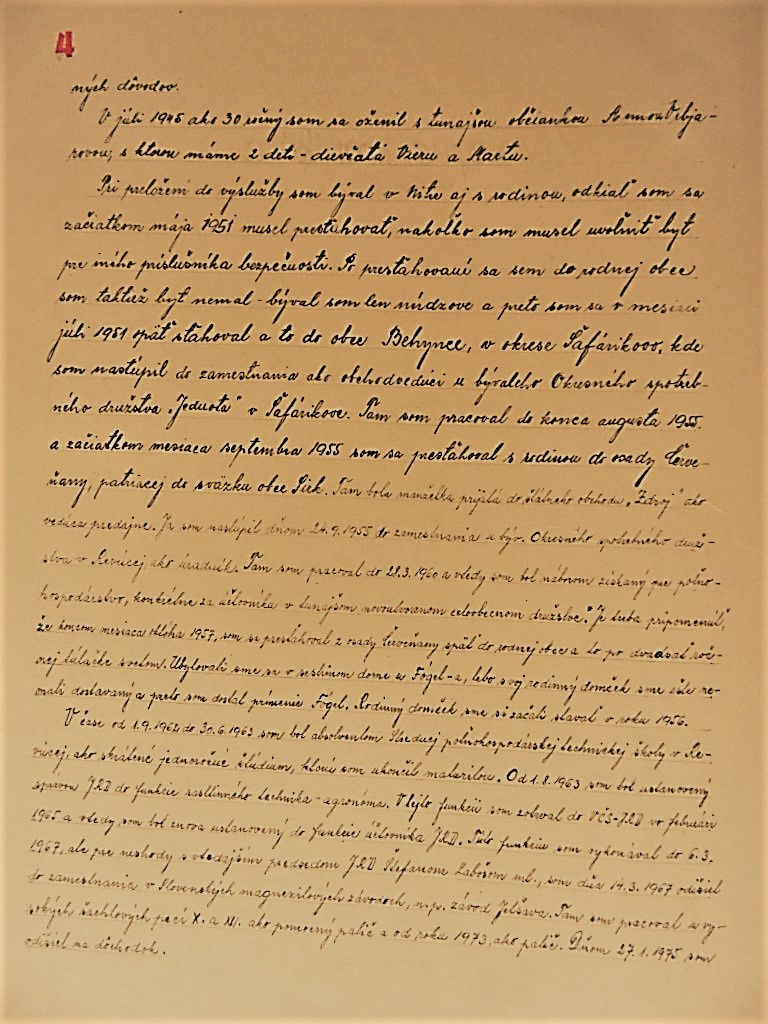 4
ných dôvodov.
V júli 1945 ako 30 ročný som sa oženil s tunajšou občiankou Annou Vrbja-
rovou, s ktorou máme 2 deti - dievčatá Vieru a Martu.
Pri preložení do výslužby som býval v Nitre aj s rodinou, odkiaľ som sa
začiatkom mája 1951 musel presťahovať, nakoľko som musel uvolniť byt
pre iného príslušníka bezpečnosti. Po presťahovaní sa sem do rodnej obce,
som taktiež byt nemal - býval som len núdzove a preto som sa v mesiaci
júli 1951 opäť sťahoval a to do obce Behynce, v okrese Šafárikovo, kde
som nastúpil do zamestnania ako obchodvedúci u bývalého Okresného spotreb-
ného družstva „Jednota" v Šafárikove. Tam som pracoval do konca augusta 1955
a začiatkom mesiaca septembra 1955 som sa presťahoval s rodinou do osady Červe-
ňany, patriacej do sväzku obce Sirk. Tam bola manželka prijatá do štátneho obchodu „Zdroj" ako
vedúca predajne. Ja som nastúpil dňom 24.9.1955 do zamestnania u býv. Okresného spotrebného druž-
stva v Revúcej, ako úradník. Tam som pracoval do 28.3.1960 a vtedy som bol náborom získaný pre poľno-
hospodárstvo, konkrétne za účtovníka v tunajšom novoutvorenom celoobecnom družstve. Je treba pripomenúť,
že koncom mesiaca 1957, som sa presťahoval z osady Červeňany späť do rodnej obce a to po dvadsať roč-
nej túlačke svetom. Ubytovali sme sa v sestrinom dome u Fógel-a, lebo svoj rodinný domček sme ešte ne-
mali dostavaný a preto som dostal prímenie Fógel. Rodinný domček sme si začali stavať v roku 1956.
V čase od 1.9.1962 do 30.6.1963 som bol absolventom Strednej poľnohospodárskej technickej školy v Re-
vúcej, ako skrátené jednoročné štúdium, ktorú som ukončil maturitou. Od 1.8.1963 som bol ustanovený
správou JRD do funkcie rastlinného technika - agronóma. V tejto funkcii som zotrval do VČS-JRD vo februári
1965 a vtedy som bol znova ustanovený do funkcie účtovníka JRD. Túto funkciu som vykonával do 6.3.
1967, ale pre neshody s vtedajším predsedom JRD Štefanom Labošom ml., som dňa 14.3.1967 odišiel
do zamestnania v Slovenských magnezitových závodoch, n.p. závod Jelšava. Tam som pracoval u vy-
sokých šachtových pecí X. a XI. ako pomocný palič a od roku 1973, ako palič. Dňom 27.1.1975 som
odišiel na dôchodok.